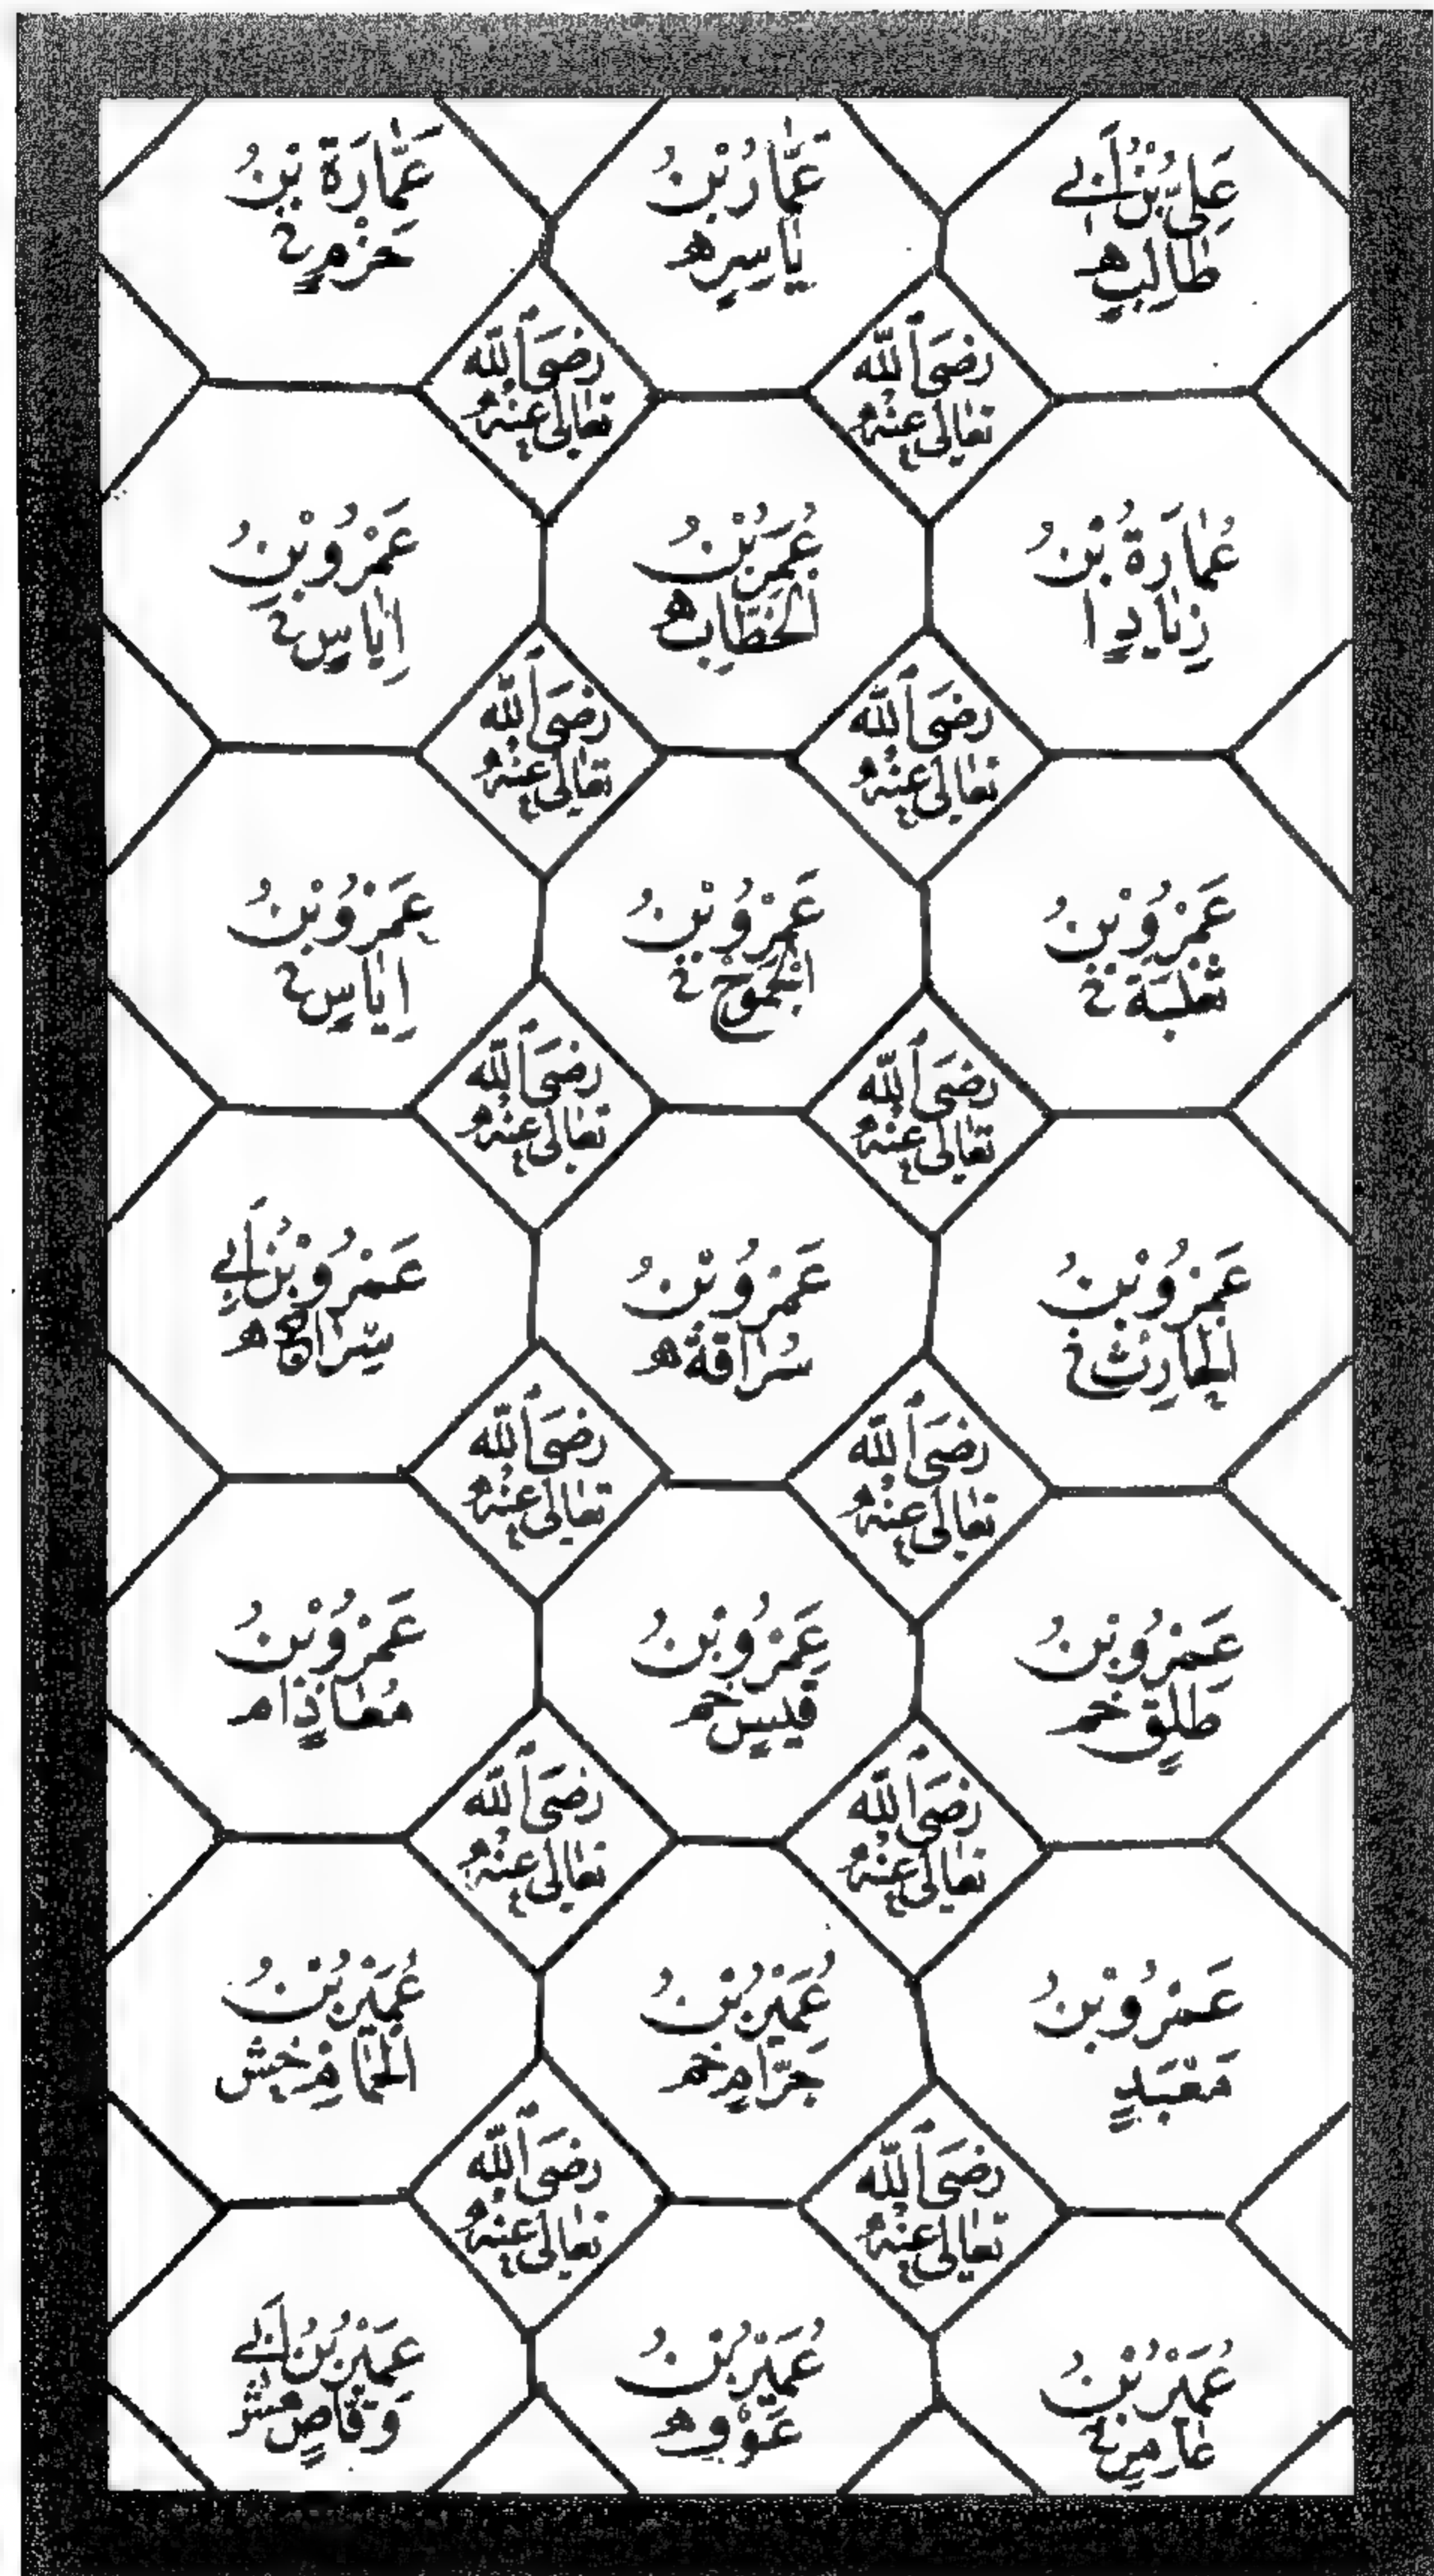 عَلِيُّ بْنُ أَبِي
طَالِبٍ ه
عَمَّارُ بْنُ
يَاسِرٍ ه
عَمَّارَةُ بْنُ
حَزْمٍ خ
رَضِيَ اللّٰهُ
تَعَالٰى عَنْهُ
رَضِيَ اللّٰهُ
تَعَالٰى عَنْهُ
عُمَارَةُ بْنُ
زِيَادٍ ا
عُمَرُ بْنُ
الْخَطَّابِ ه
عَمْرُو بْنُ
إِيَاسٍ خ
رَضِيَ اللّٰهُ
تَعَالٰى عَنْهُ
رَضِيَ اللّٰهُ
تَعَالٰى عَنْهُ
عَمْرُو بْنُ
ثَعْلَبَةَ خ
عَمْرُو بْنُ
الْجَمُوحِ خ
عَمْرُو بْنُ
إِيَاسٍ خ
رَضِيَ اللّٰهُ
تَعَالٰى عَنْهُ
رَضِيَ اللّٰهُ
تَعَالٰى عَنْهُ
عَمْرُو بْنُ
الْحَارِثِ خ
عَمْرُو بْنُ
سُرَاقَةَ ه
عَمْرُو بْنُ أَبِي
سِرَاجٍ ه
رَضِيَ اللّٰهُ
تَعَالٰى عَنْهُ
رَضِيَ اللّٰهُ
تَعَالٰى عَنْهُ
عَمْرُو بْنُ
طَلْقٍ خم
عَمْرُو بْنُ
قَيْسٍ خم
عَمْرُو بْنُ
مُعَاذٍ ام
رَضِيَ اللّٰهُ
تَعَالٰى عَنْهُ
رَضِيَ اللّٰهُ
تَعَالٰى عَنْهُ
عَمْرُو بْنُ
مَعْبَدٍ
عُمَيْرُ بْنُ
حَرَامٍ خم
عُمَيْرُ بْنُ
الْحُمَامِ خش
رَضِيَ اللّٰهُ
تَعَالٰى عَنْهُ
رَضِيَ اللّٰهُ
تَعَالٰى عَنْهُ
عُمَيْرُ بْنُ
عَامِرٍ خ
عُمَيْرُ بْنُ
عَوْفٍ ه
عُمَيْرُ بْنُ أَبِي
وَقَّاصٍ هش